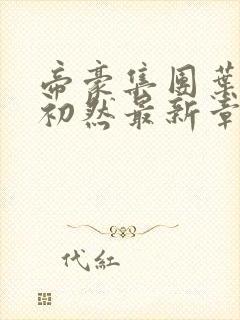 帝豪集团葉
初然最新章
代紅